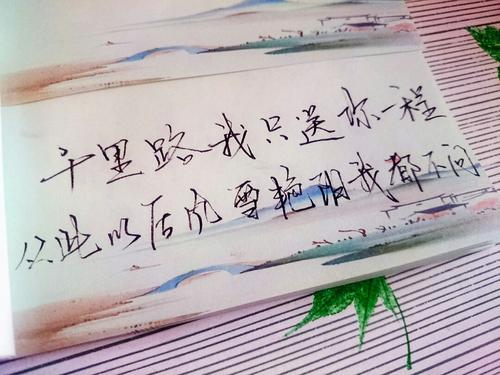 千里路我只送你一程
从此以后风雪艳阳我都不问